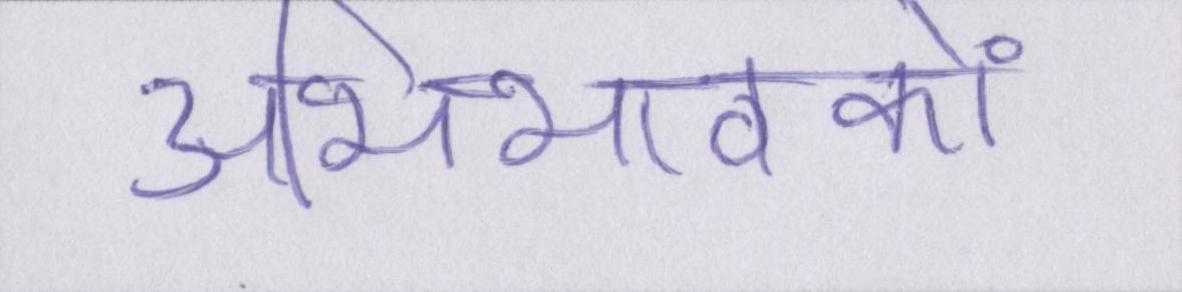 अभिभावकों